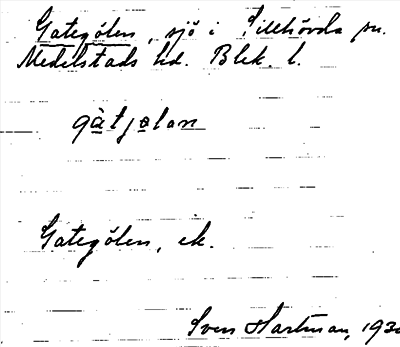 Gategölen, sjö i Tillhövda sn.
Medelstads hd. Blek. l.
gàtjolan
Gategölen, ek.
Sven Hartman, 193